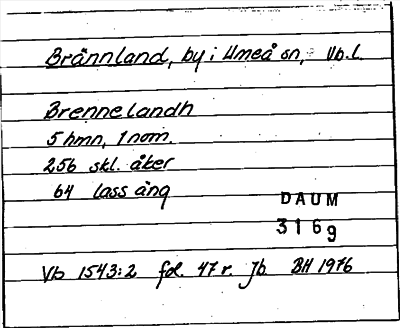 Brännland, by i Umeå sn, Vb.l.
Brennelandh
5 hmn, 1 nom.
256 skl. åker
64 lass äng
DAUM
3169
Vb 1543:2 fol. 47 r. Jb. BH 1976